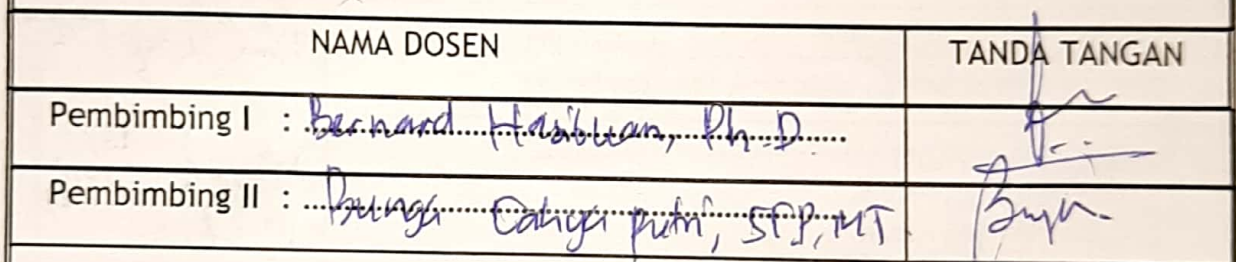 NAMA DOSEN TANDA TANGAN
Pembimbing I : Bernard Hasibuan, Ph.D
Pembimbing II : Bunga Cahya putri, STP, MT